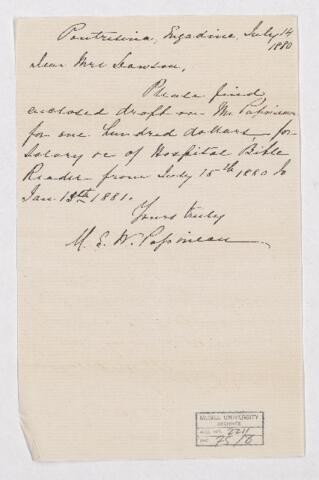 Pontresina, Engadine July 14
1880
Dear Mrs Dawson,
Please find
enclosed draft on Mr. Papineau
for one hundred dollars, for
salary &c of Hospital Bible
Reader from July 15th 1880 to
Jan. 15th 1881.
Yours truly
M. E. W. Papineau
McGILL UNIVERSITY
ARCHIVES
ACC. NO. 2211
REF.